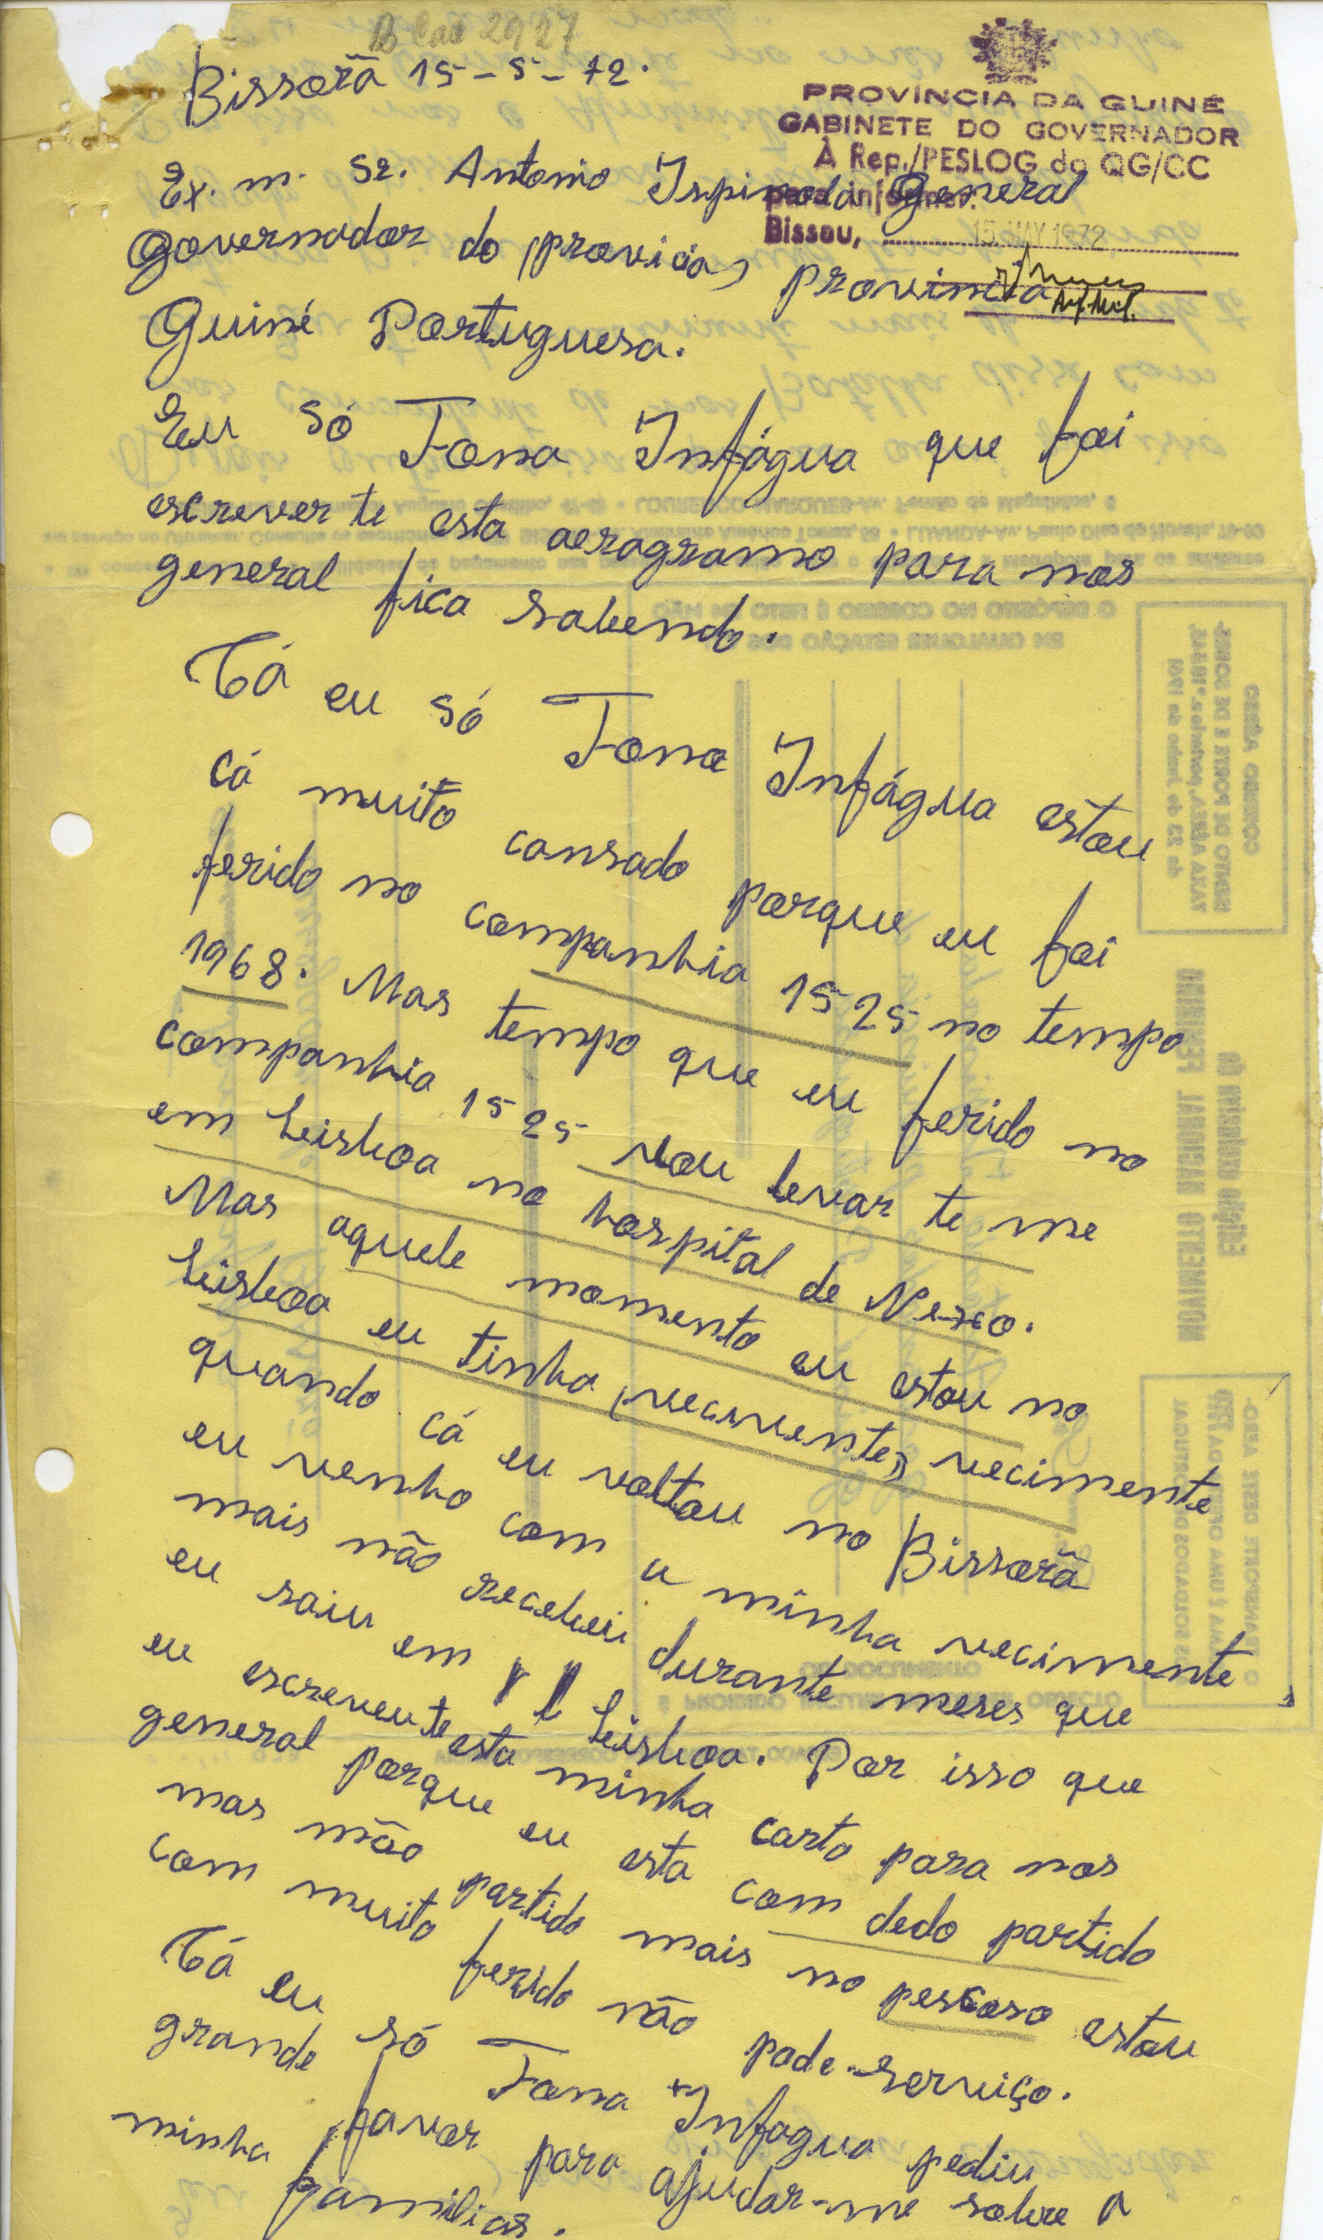 Bissorã 15-5-72.
PROVÍNCIA DA GUINÉ
GABINETE DO GOVERNADOR
À Rep./PESLOG do QG/CC
para informar.
Bissau, 15 MAY 1972
Ex. m. Sr. Antonio Ispinola General
Governador do (provicia) provincia
Guiné Portuguesa.
Eu só Fona Infágua que foi
escrever te esta aeragramo para nos
general fica sabendo.
Cá eu só Fona Infágua estou
cá muito consado porque eu foi
ferido no companhia 1525 no tempo
1968. Mas tempo que eu ferido no
companhia 1525 vou levar te me
em Leisboa no hospital de Nexo.
Mas aquele momento eu estou no
Leisboa eu tinha (vecimente) vecimente
quando cá eu voltou no Bissorã
eu venho com a minha vecimente
mais não recebei durante meses que
eu saiu em Leisboa. Por isso que
eu escreveu te esta minha carto para nos
general porque eu esta com dedo partido
mas mão partido mais no pescoso estou
com muito ferido não pode serviço.
Cá eu só Fona Infagua pediu
grande favor para ajudar-me sobre a
minha familias.